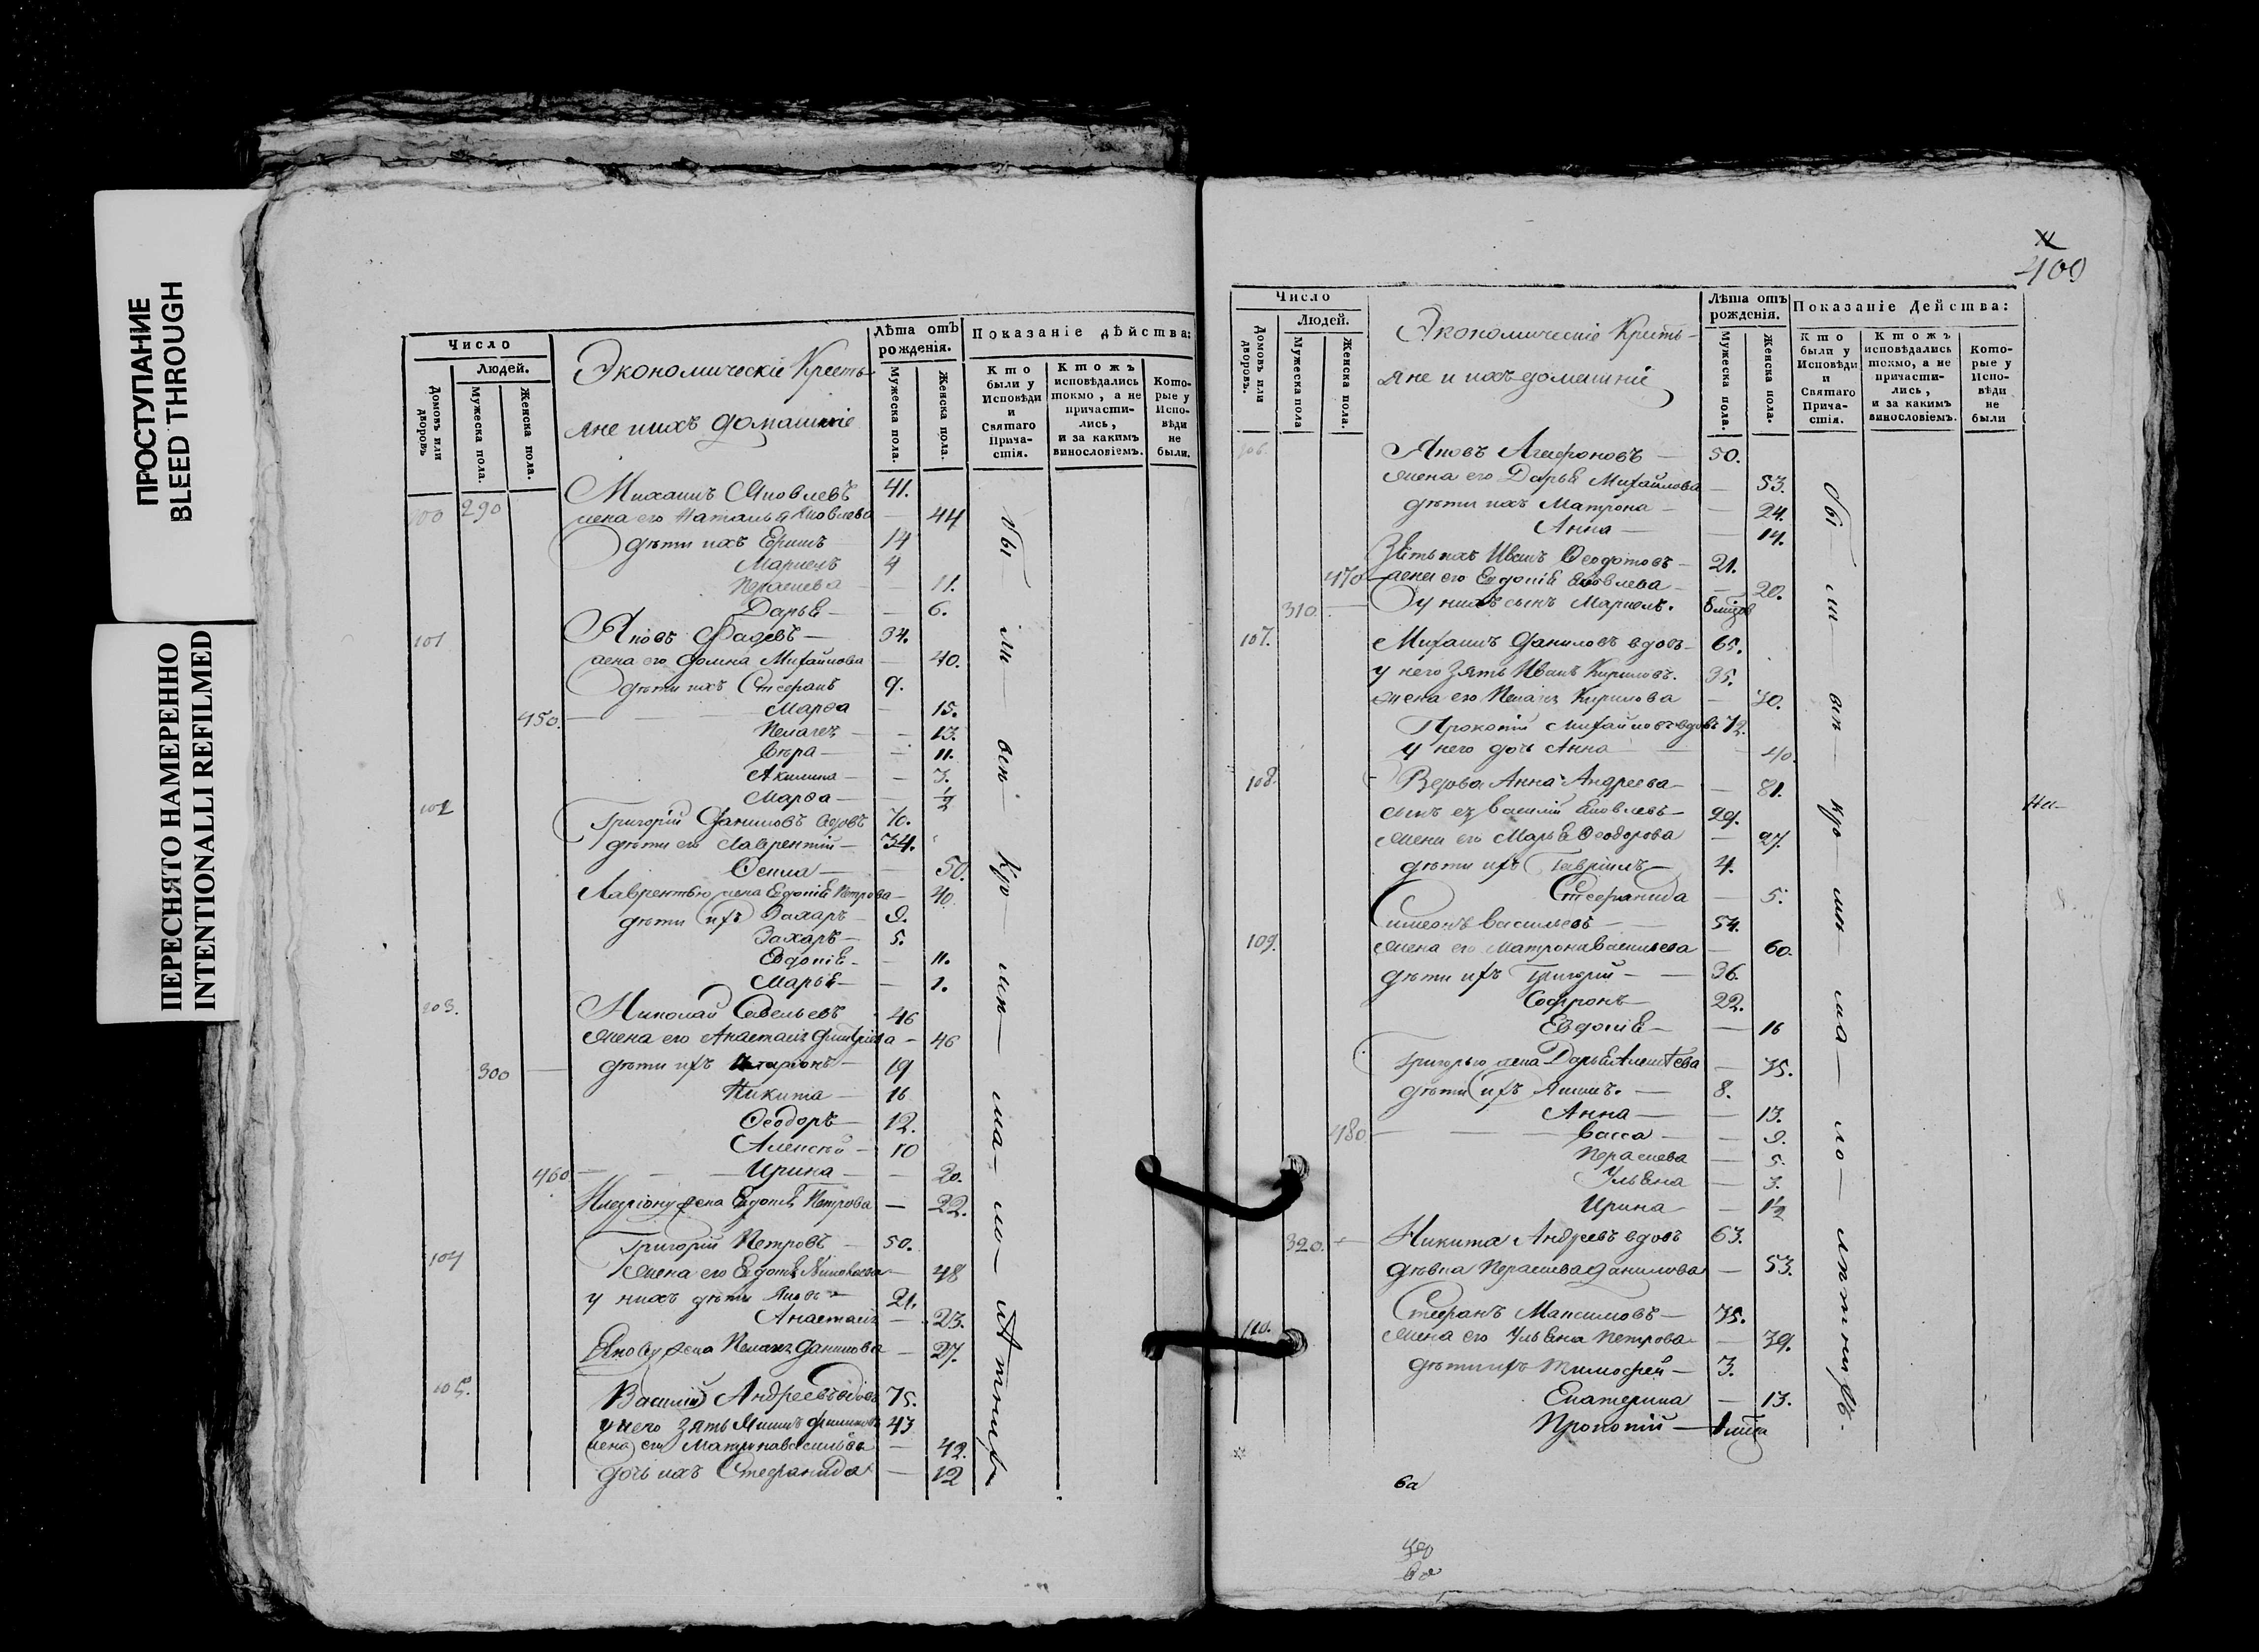 ПРОСТУПАНИЕ
BLEED THROUGH
ПЕРЕСНЯТО НАМЕРЕННО
INTENTIONALLI REFILMED
Число
Людей.
Домовъ или дворовъ
Мужеска пола.
Женска пола.
Экономическіе Кресть-
яне и ихъ домашніе
Лѣта отъ рожденія.
Мужеска пола.
Женска пола.
Показаніе дѣйства:
Кто были у Исповѣди и Святаго Прича-стія.
Ктожъ исповѣдались токмо, а не причасти-лись, и за какимъ винословіемъ.
Кото-рые у Испо-вѣди не были.
100 290 Михаилъ Яковлевъ 41.
жена его Наталья Яковлева — 44
дѣти ихъ 14
4
Параскева — 11.
Дарья — 6.
101 Яковъ 34.
жена его Домна Михайлова — 40.
дѣти ихъ Стефанъ 9.
450. Марѳа — 15.
Пелагея — 13.
Вѣра — 11.
Акилина — 3.
Марѳа — 1/2
102 Григорій Даниловъ вдовъ 70.
дѣти его Лаврентій — 34.
50.
Лаврентью жена Евдокія Петрова — 40.
дѣти ихъ Захаръ — 9.
Захаръ — 5.
Евдокія — 11.
Марья — 1.
103. Николай Савельевъ 46
жена его Анастасія — 46
300 дѣти ихъ Иларіонъ — 19
Никита — 16
Ѳеодоръ — 12.
Алексѣй — 10
460 Ирина — 20.
Иларіону жена Евдокія Петрова — 22.
104 Григорій Петровъ — 50.
жена его Евдокія — 48
у нихъ дѣти Яковъ — 21.
Анастасія — 23.
Якову жена Пелагея Данилова — 27.
105. Василій Андреевъ вдовъ 75.
у него зять 43
жена его Матрона Васильева — 42.
дочь ихъ Стефанида — 12
бы — ли — всѣ — 
400
Число
Людей.
Домовъ или дворовъ.
Мужеска пола
Женска пола.
Экономическіе Кресть-
яне и ихъ домашніе
Лѣта отъ рожденія.
Мужеска пола.
Женска пола.
Показаніе Действа:
Кто были у Исповѣди и Святаго Прича-стія.
Ктожъ исповѣдались токмо, а не причасти-лись, и за какимъ винословіемъ.
Кото-рые у Испо-вѣди не были
106. Яковъ Агафоновъ — 50.
жена его Дарья Михайлова — 53.
дѣти ихъ Матрона — 24.
Анна — 14.
Зять ихъ Иванъ Ѳеодотовъ — 21.
470 жена его Евдокія Яковлева — 20.
310. у нихъ сынъ
107. Михаилъ Даниловъ вдовъ — 65.
у него зять Иванъ Кириловъ. 35.
жена его Пелагея Кирилова — 30.
Прокопій Михайловъ вдовъ 72.
у него дочь Анна — 40.
108. Вдова Анна Андреева — 81.
сынъ ея Василій Яковлевъ — 29.
жена его Марья Ѳеодорова — 27.
дѣти ихъ Гавріилъ — 4.
Стефанида — 5.
109. Симеонъ Васильевъ — 54.
жена его Матрона Васильева — 60.
дѣти ихъ Григорій — 36.
Софронъ — 22.
Евдокія — 16
Григорью жена Дарья Алексѣева — 35.
дѣти ихъ 8.
Анна — 13.
480 Васса — 9.
Параскева — 5.
Ульяна — 3.
Ирина — 1 1/2
320. Никита Андреевъ вдовъ 63.
дѣвка Параскева Данилова — 53.
110. Стефанъ Максимовъ — 35.
жена его Ульяна Петрова — 39.
дѣти ихъ Тимофей — 3.
Екатерина — 13.
Прокопій —
бы — ли — всѣ — 
6а